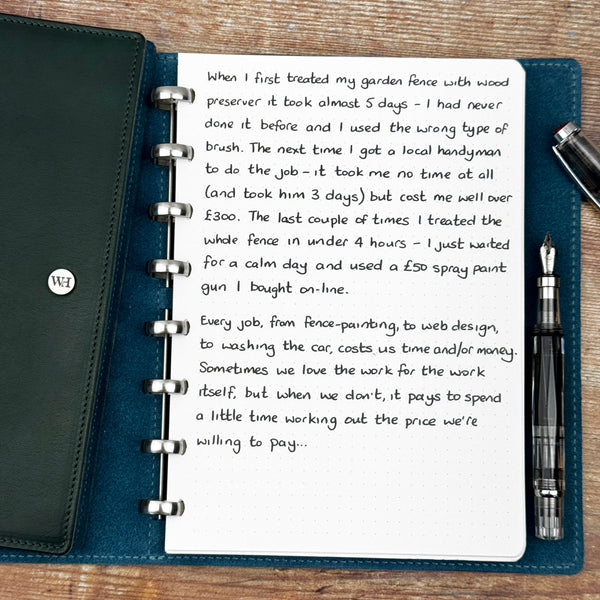 When I first treated my garden fence with wood
preserver it took almost 5 days - I had never
done it before and I used the wrong type of
brush. The next time I got a local handyman
to do the job - it took me no time at all
(and took him 3 days) but cost me well over
£300. The last couple of times I treated the
whole fence in under 4 hours - I just waited
for a calm day and used a £50 spray paint
gun I bought on-line.
Every job, from fence-painting, to web design,
to washing the car, costs us time and/or money.
Sometimes we love the work for the work
itself, but when we don't, it pays to spend
a little time working out the price we're
willing to pay...
WH